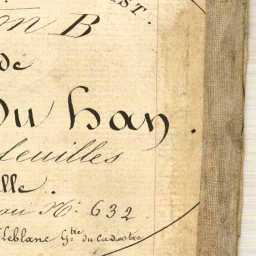 ST.
on B
de
Du han.
feuilles
lle.
ou N.° 632
Leblanc G.tre du Cadastre